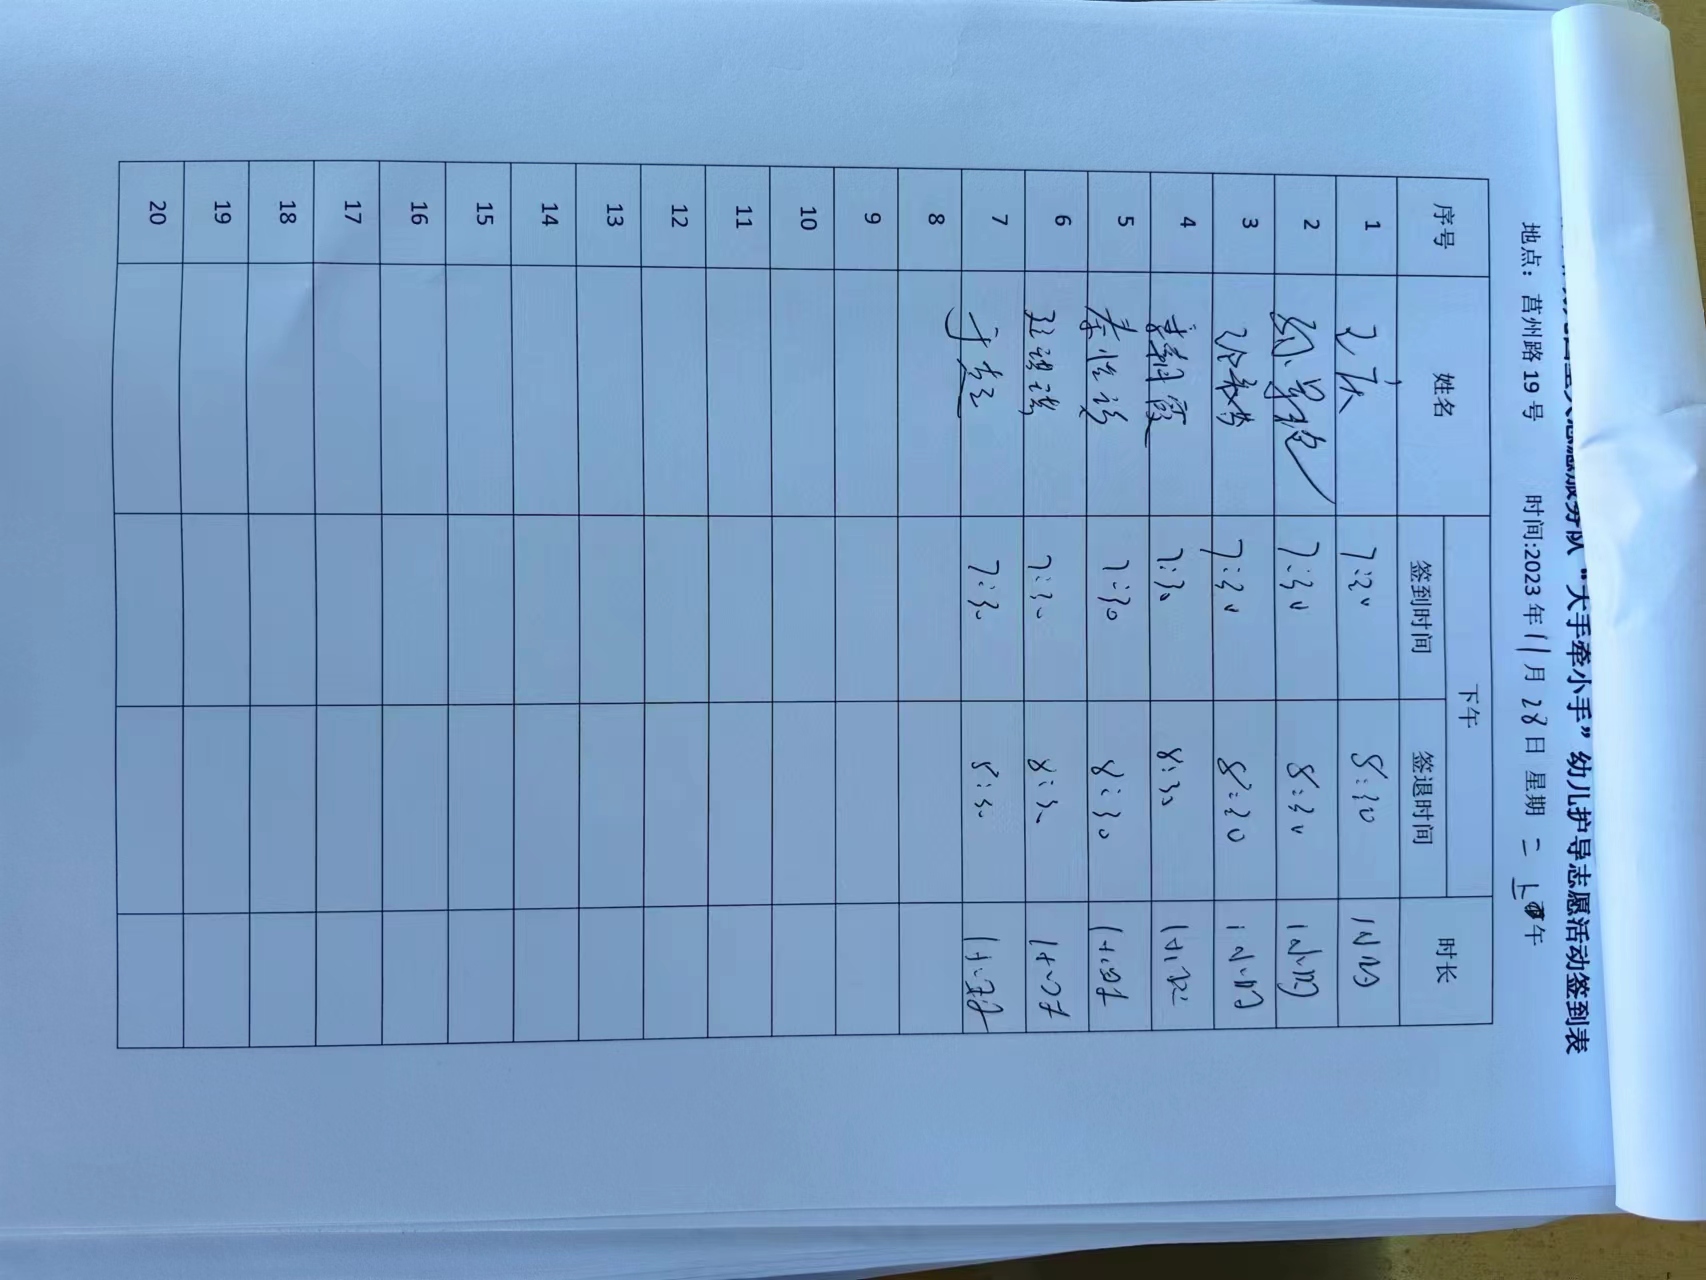 志愿服务队“大手牵小手”幼儿护导志愿活动签到表
地点：莒州路19号 时间:2023年11月28日 星期二 上午
序号 姓名 下午 时长
签到时间 签退时间
1 7:30 8:30 1小时
2 7:30 8:30 1小时
3 7:30 8:30 1小时
4 7:30 8:30 1小时
5 7:30 8:30 1小时
6 7:30 8:30 1小时
7 7:30 8:30 1小时
8
9
10
11
12
13
14
15
16
17
18
19
20